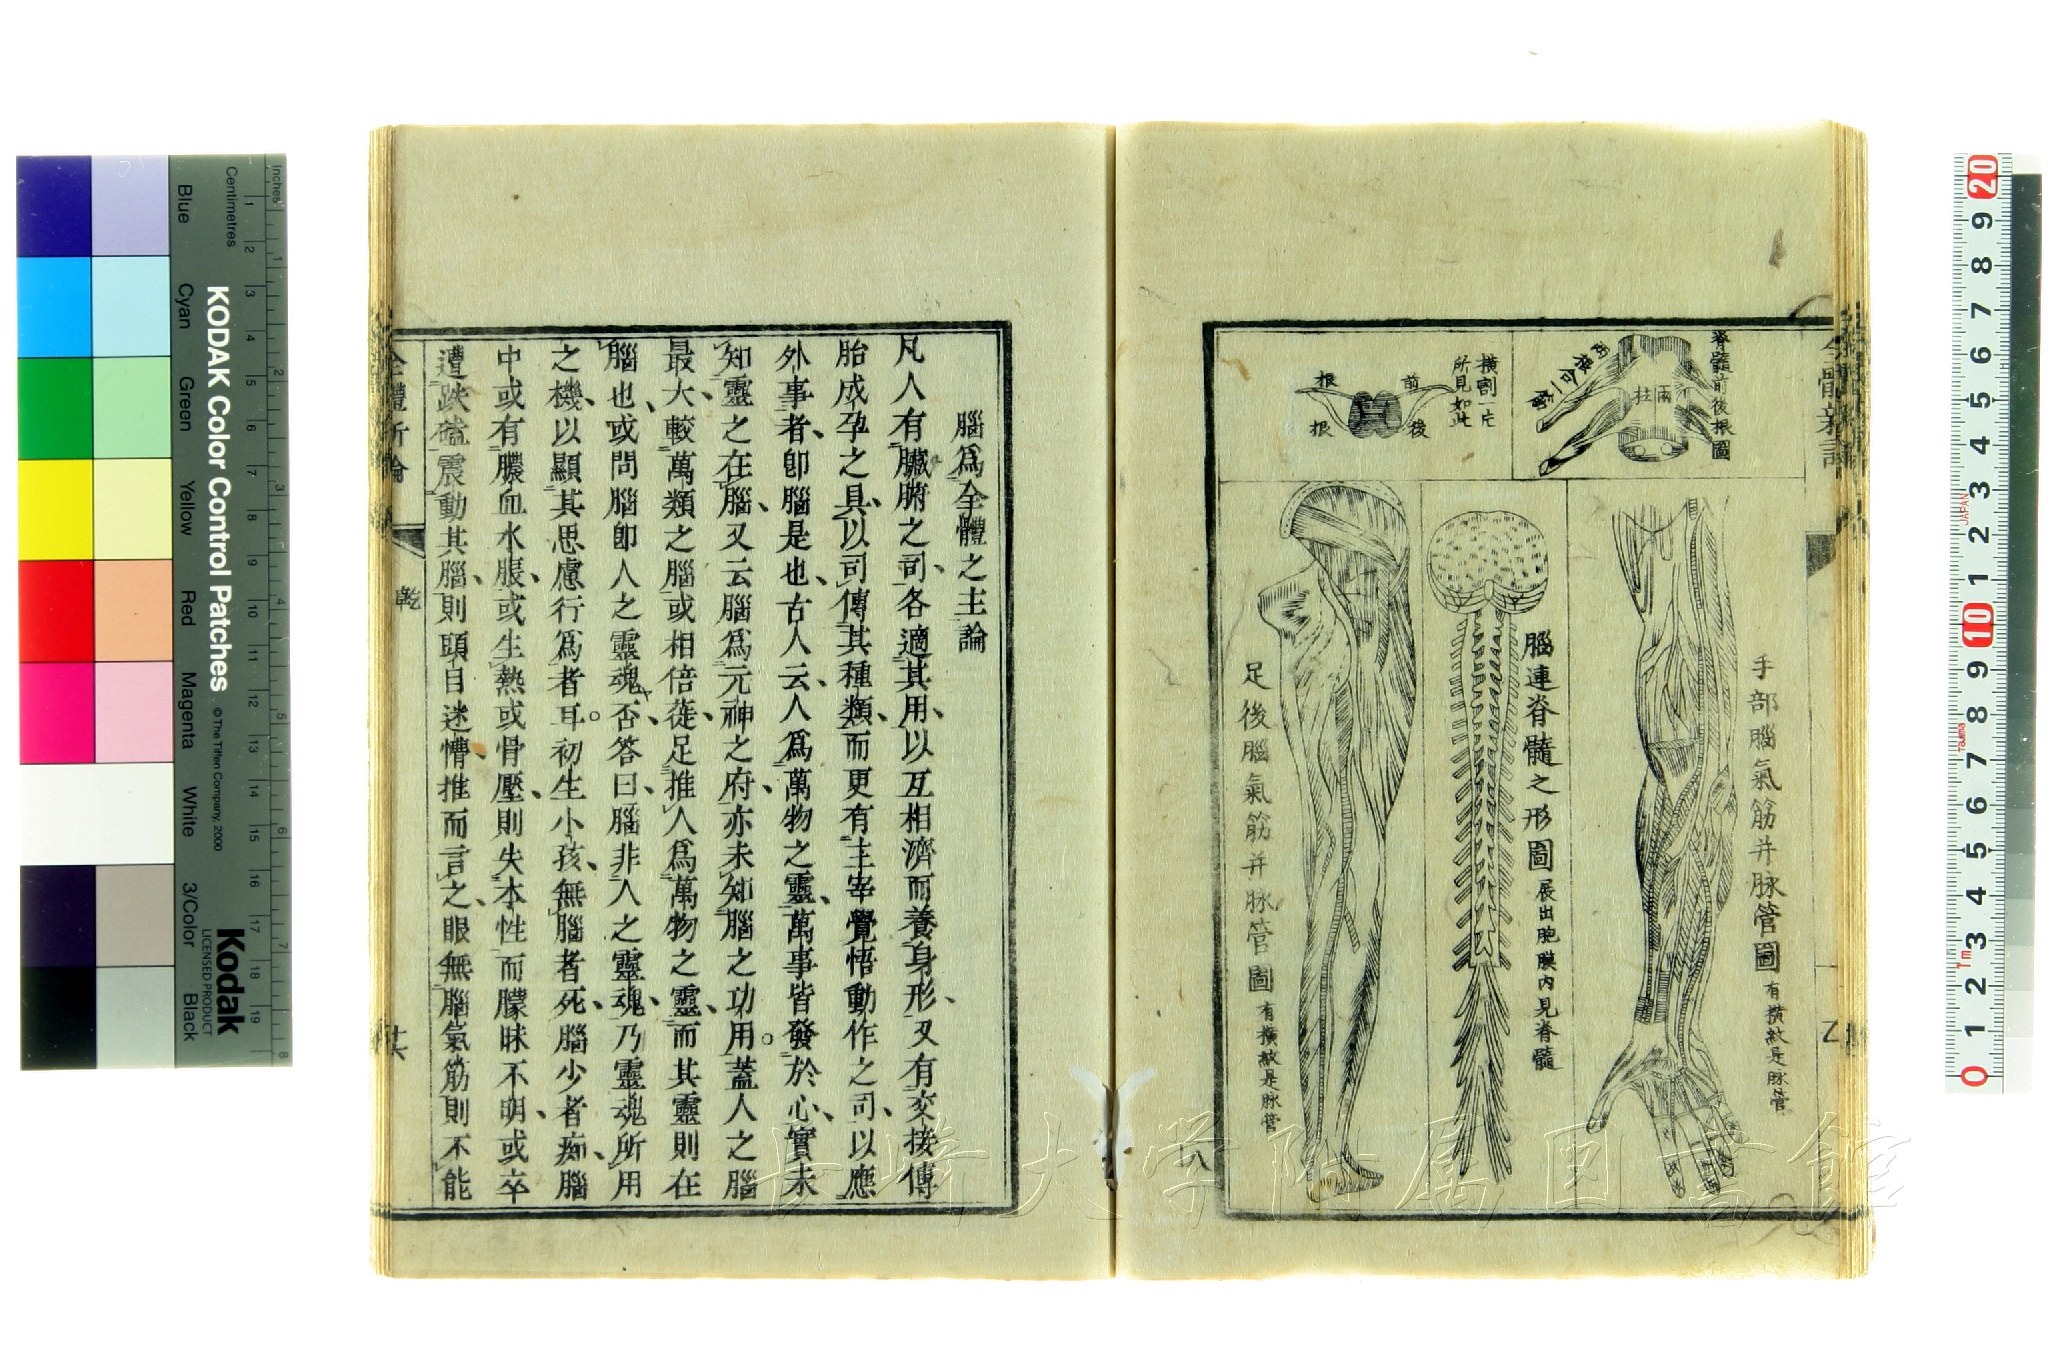 脊髓前後根圖
兩柱
兩根合一
橫割一片
所見如此
前
後
根
根
手部腦氣筋并脉管圖 有橫紋是脉管
腦連脊髓之形圖 展出胞膜內見脊髓
足後腦氣筋并脉管圖 有橫紋是脉管
腦爲全體之主論
凡人有臟腑之司、各適其用、以互相濟而養身形、又有交接傳
胎成孕之具、以司傳其種類、而更有主宰覺悟動作之司、以應
外事者、卽腦是也、古人云、人爲萬物之靈、萬事皆發於心、實未
知靈之在腦、又云腦爲元神之府、亦未知腦之功用。蓋人之腦
最大、較萬類之腦、或相倍蓰、足推人爲萬物之靈、而其靈則在
腦也、或問腦卽人之靈魂否、答曰、腦非人之靈魂、乃靈魂所用
之機、以顯其思慮行爲者耳。初生小孩、無腦者死、腦少者痴、腦
中或有膿血水脹、或生熱或骨壓、則失本性而朦昧不明、或卒
遭跌磕震動其腦、則頭目迷懵、推而言之、眼無腦氣筋則不能
全體新論
乾
十六
KODAK Color Control Patches
© The Tiffen Company, 2000
Kodak
LICENSED PRODUCT
Inches
Centimetres
Blue
Cyan
Green
Yellow
Red
Magenta
White
3/Color
Black
1 2 3 4 5 6 7 8 9 10 11 12 13 14 15 16 17 18 19
1 2 3 4 5 6 7 8
20 9 8 7 6 5 4 3 2 1 10 9 8 7 6 5 4 3 2 1 0
JAPAN
Tajima
長崎大学附属図書館